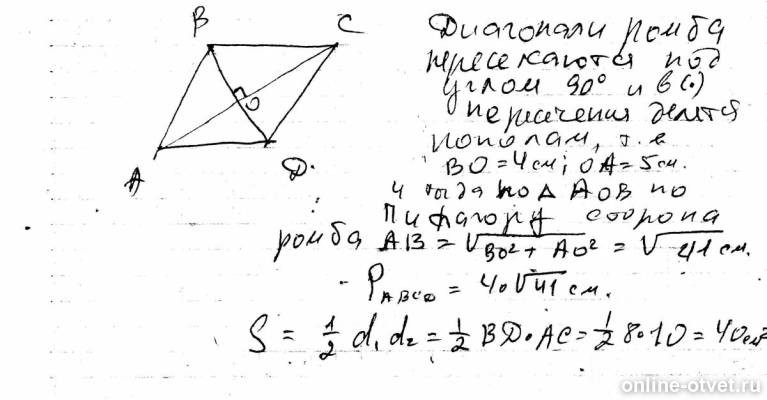 B C
Диагонали ромба
пересекаются под
углом 90° и в (•)
пересечения делятся
пополам, т.е
BO = 4 см; OA = 5 см.
и тогда по Δ AOB по
Пифагору сторона
ромба AB = √BO² + AO² = √41 см.
P ABCD = 4•√41 см.
S = 1/2 d₁ d₂ = 1/2 BD • AC = 1/2 8•10 = 40 см²
O
A D.
online-otvet.ru